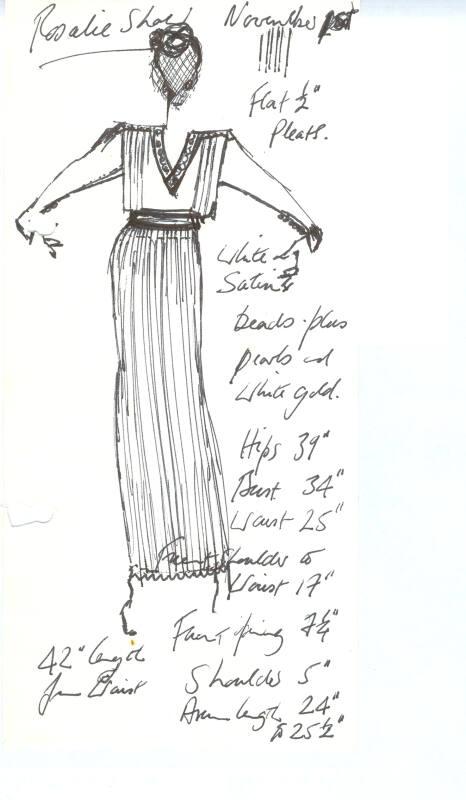 Rosalie Shaw
November 1st
Flat ½"
Pleats.
White
Satin
beads plus
pearls and
White gold.
Hips 39"
Bust 34"
Waist 25"
Front shoulder to
Waist 17"
Front 7¼"
Shoulder 5"
Arm length 24"
to 25½"
42" length
from Waist